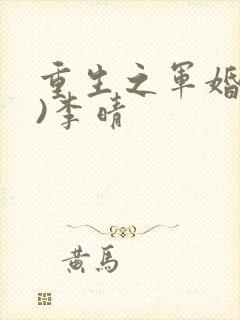 重生之军婚
)李晴
黄马